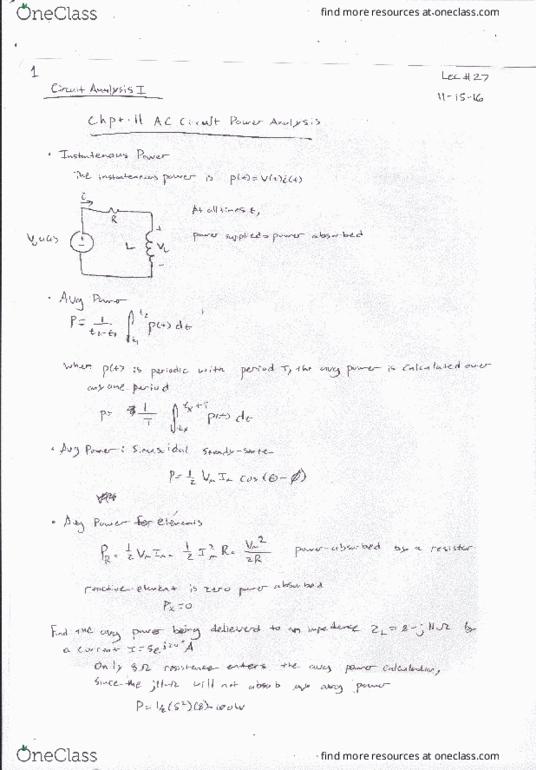 OneClass
find more resources at oneclass.com
1
Circuit Analysis I
Lec #27
11-15-16
Chpt. 11 AC Circuit Power Analysis
• Instantenous Power
The instantenous power is p(t)=v(t)i(t)
i
R
At all times t,
V₀u(t)
+
-
L
+
V_L
-
power supplied = power absorbed
• Avg Power
P = 1/(t₂-t₁) ∫_{t₁}^{t₂} p(t) dt
When p(t) is periodic with period T, the avg power is calculated over
any one period
P = 1/T ∫_{tₓ}^{tₓ+T} p(t) dt
• Avg Power: Sinusoidal Steady-State
P = ½ Vₘ Iₘ cos(θ-φ)
• Avg Power for elements
P_R = ½ Vₘ Iₘ = ½ Iₘ² R = Vₘ²/2R power absorbed by a resistor
reactive element is zero power absorbed
Pₓ = 0
Find the avg power being delievered to an impedence Z_L = 8-j11Ω by
a current I = 5e^{j20°} A
Only 8Ω resistance enters the avg power calculation,
since the j11Ω will not absorb avg power
P = ½(5²)(8) = 100W
OneClass
find more resources at oneclass.com